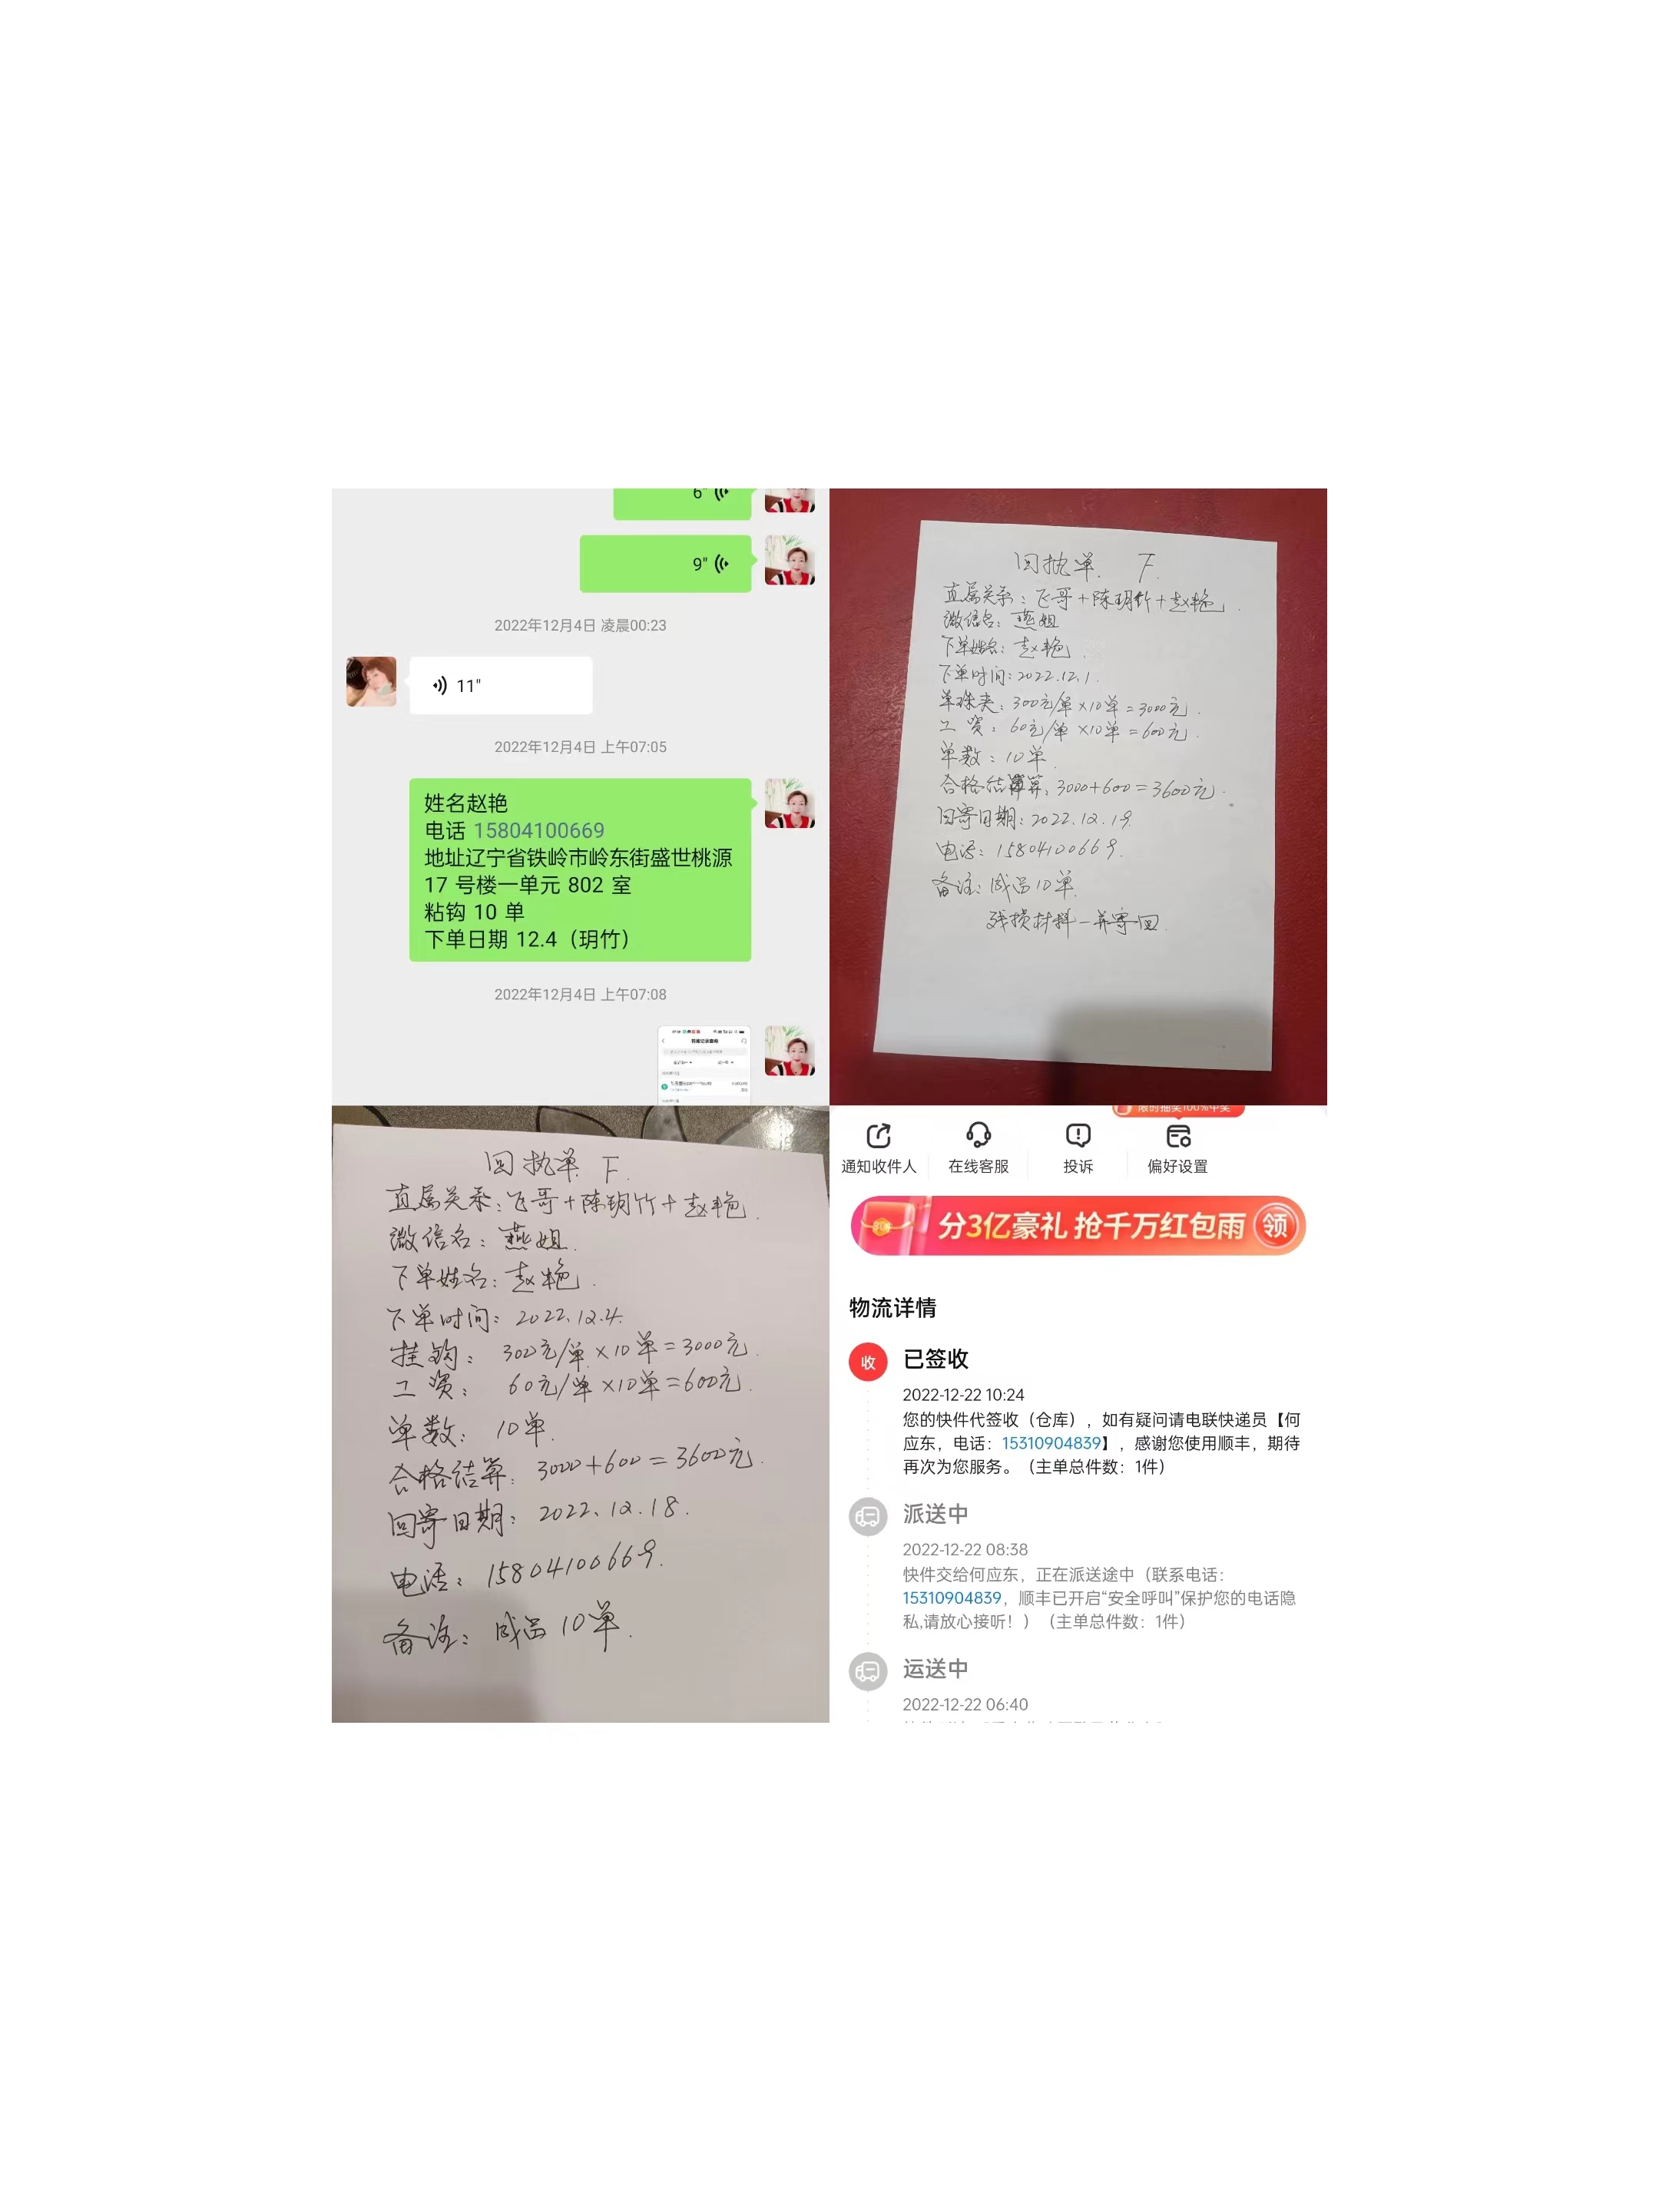 6"
9"
2022年12月4日 凌晨00:23
11"
2022年12月4日 上午07:05
姓名赵艳
电话 15804100669
地址辽宁省铁岭市岭东街盛世桃源
17 号楼一单元 802 室
粘钩 10 单
下单日期 12.4（玥竹）
2022年12月4日 上午07:08
回执单. F.
直属关系：飞哥+陈玥竹+赵艳.
微信名：燕姐
下单姓名：赵艳.
下单时间：2022.12.1.
单珠夹：300元/单×10单=3000元.
工资：60元/单×10单=600元.
单数：10单.
合格结算：3000+600=3600元.
回寄日期：2022.12.19.
电话：15804100669.
备注：成品10单.
残损材料一并寄回.
回执单. F.
直属关系：飞哥+陈玥竹+赵艳.
微信名：燕姐.
下单姓名：赵艳.
下单时间：2022.12.4.
挂钩：300元/单×10单=3000元.
工资：60元/单×10单=600元.
单数：10单.
合格结算：3000+600=3600元.
回寄日期：2022.12.18.
电话：15804100669.
备注：成品10单.
限时抽奖100%中奖
通知收件人 在线客服 投诉 偏好设置
分3亿豪礼 抢千万红包雨 领
物流详情
收 已签收
2022-12-22 10:24
您的快件代签收（仓库），如有疑问请电联快递员【何
应东，电话：15310904839】，感谢您使用顺丰，期待
再次为您服务。（主单总件数：1件）
派送中
2022-12-22 08:38
快件交给何应东，正在派送途中（联系电话：
15310904839，顺丰已开启“安全呼叫”保护您的电话隐
私,请放心接听！）（主单总件数：1件）
运送中
2022-12-22 06:40